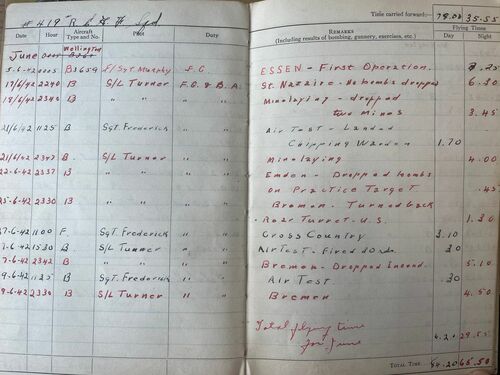 # 419 R.C.A.F. Sqd
Time carried forward:- 79.00 35.55
Date Hour Aircraft Type and No. Pilot Duty REMARKS (Including results of bombing, gunnery, exercises, etc.) Flying Times
Day Night
June Wellington
5-6-42 0005 B3659 F/Sgt. Murphy F.C. ESSEN - First Operation. 3.25
17/6/42 2240 B S/L Turner F.C. & B.A. St. Nazaire - No bombs dropped 6.30
18/6/42 2340 B " " " " Minelaying - dropped
two Mines 3.45
21/6/42 1125 B Sgt. Frederick " Air Test - Landed
Chipping Warden 1.70
21/6/42 2347 B. S/L Turner " Minelaying 4.00
22-6-42 2337 B " " " Emden - Dropped bombs
on Practice Target .45
25-6-42 2330 B " " " Bremen - Turned back
Rear Turret - U.S. 1.30
27-6-42 1100 F Sgt. Frederick " " Cross Country 3.10
7-6-42 1530 B S/L Turner " " Air Test - Fired 20 rds. 30
7-6-42 2342 B " " " " Bremen - Dropped Incend. 5.10
9-6-42 1125 B Sgt. Frederick " " Air Test 30
9-6-42 2330 B S/L Turner " " Bremen 4.50
Total flying time
for June 29.55
TOTAL TIME 84.20 65.50